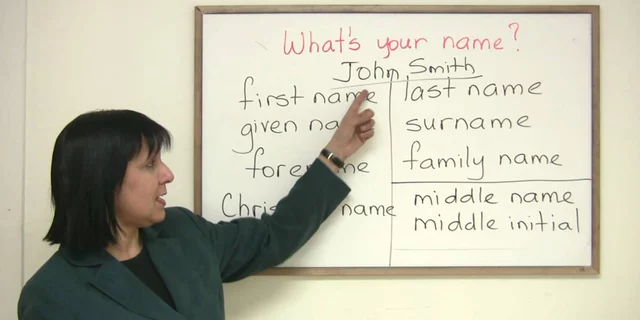 What's your name?
John Smith
first name
last name
given
surname
family name
name
middle name
middle initial